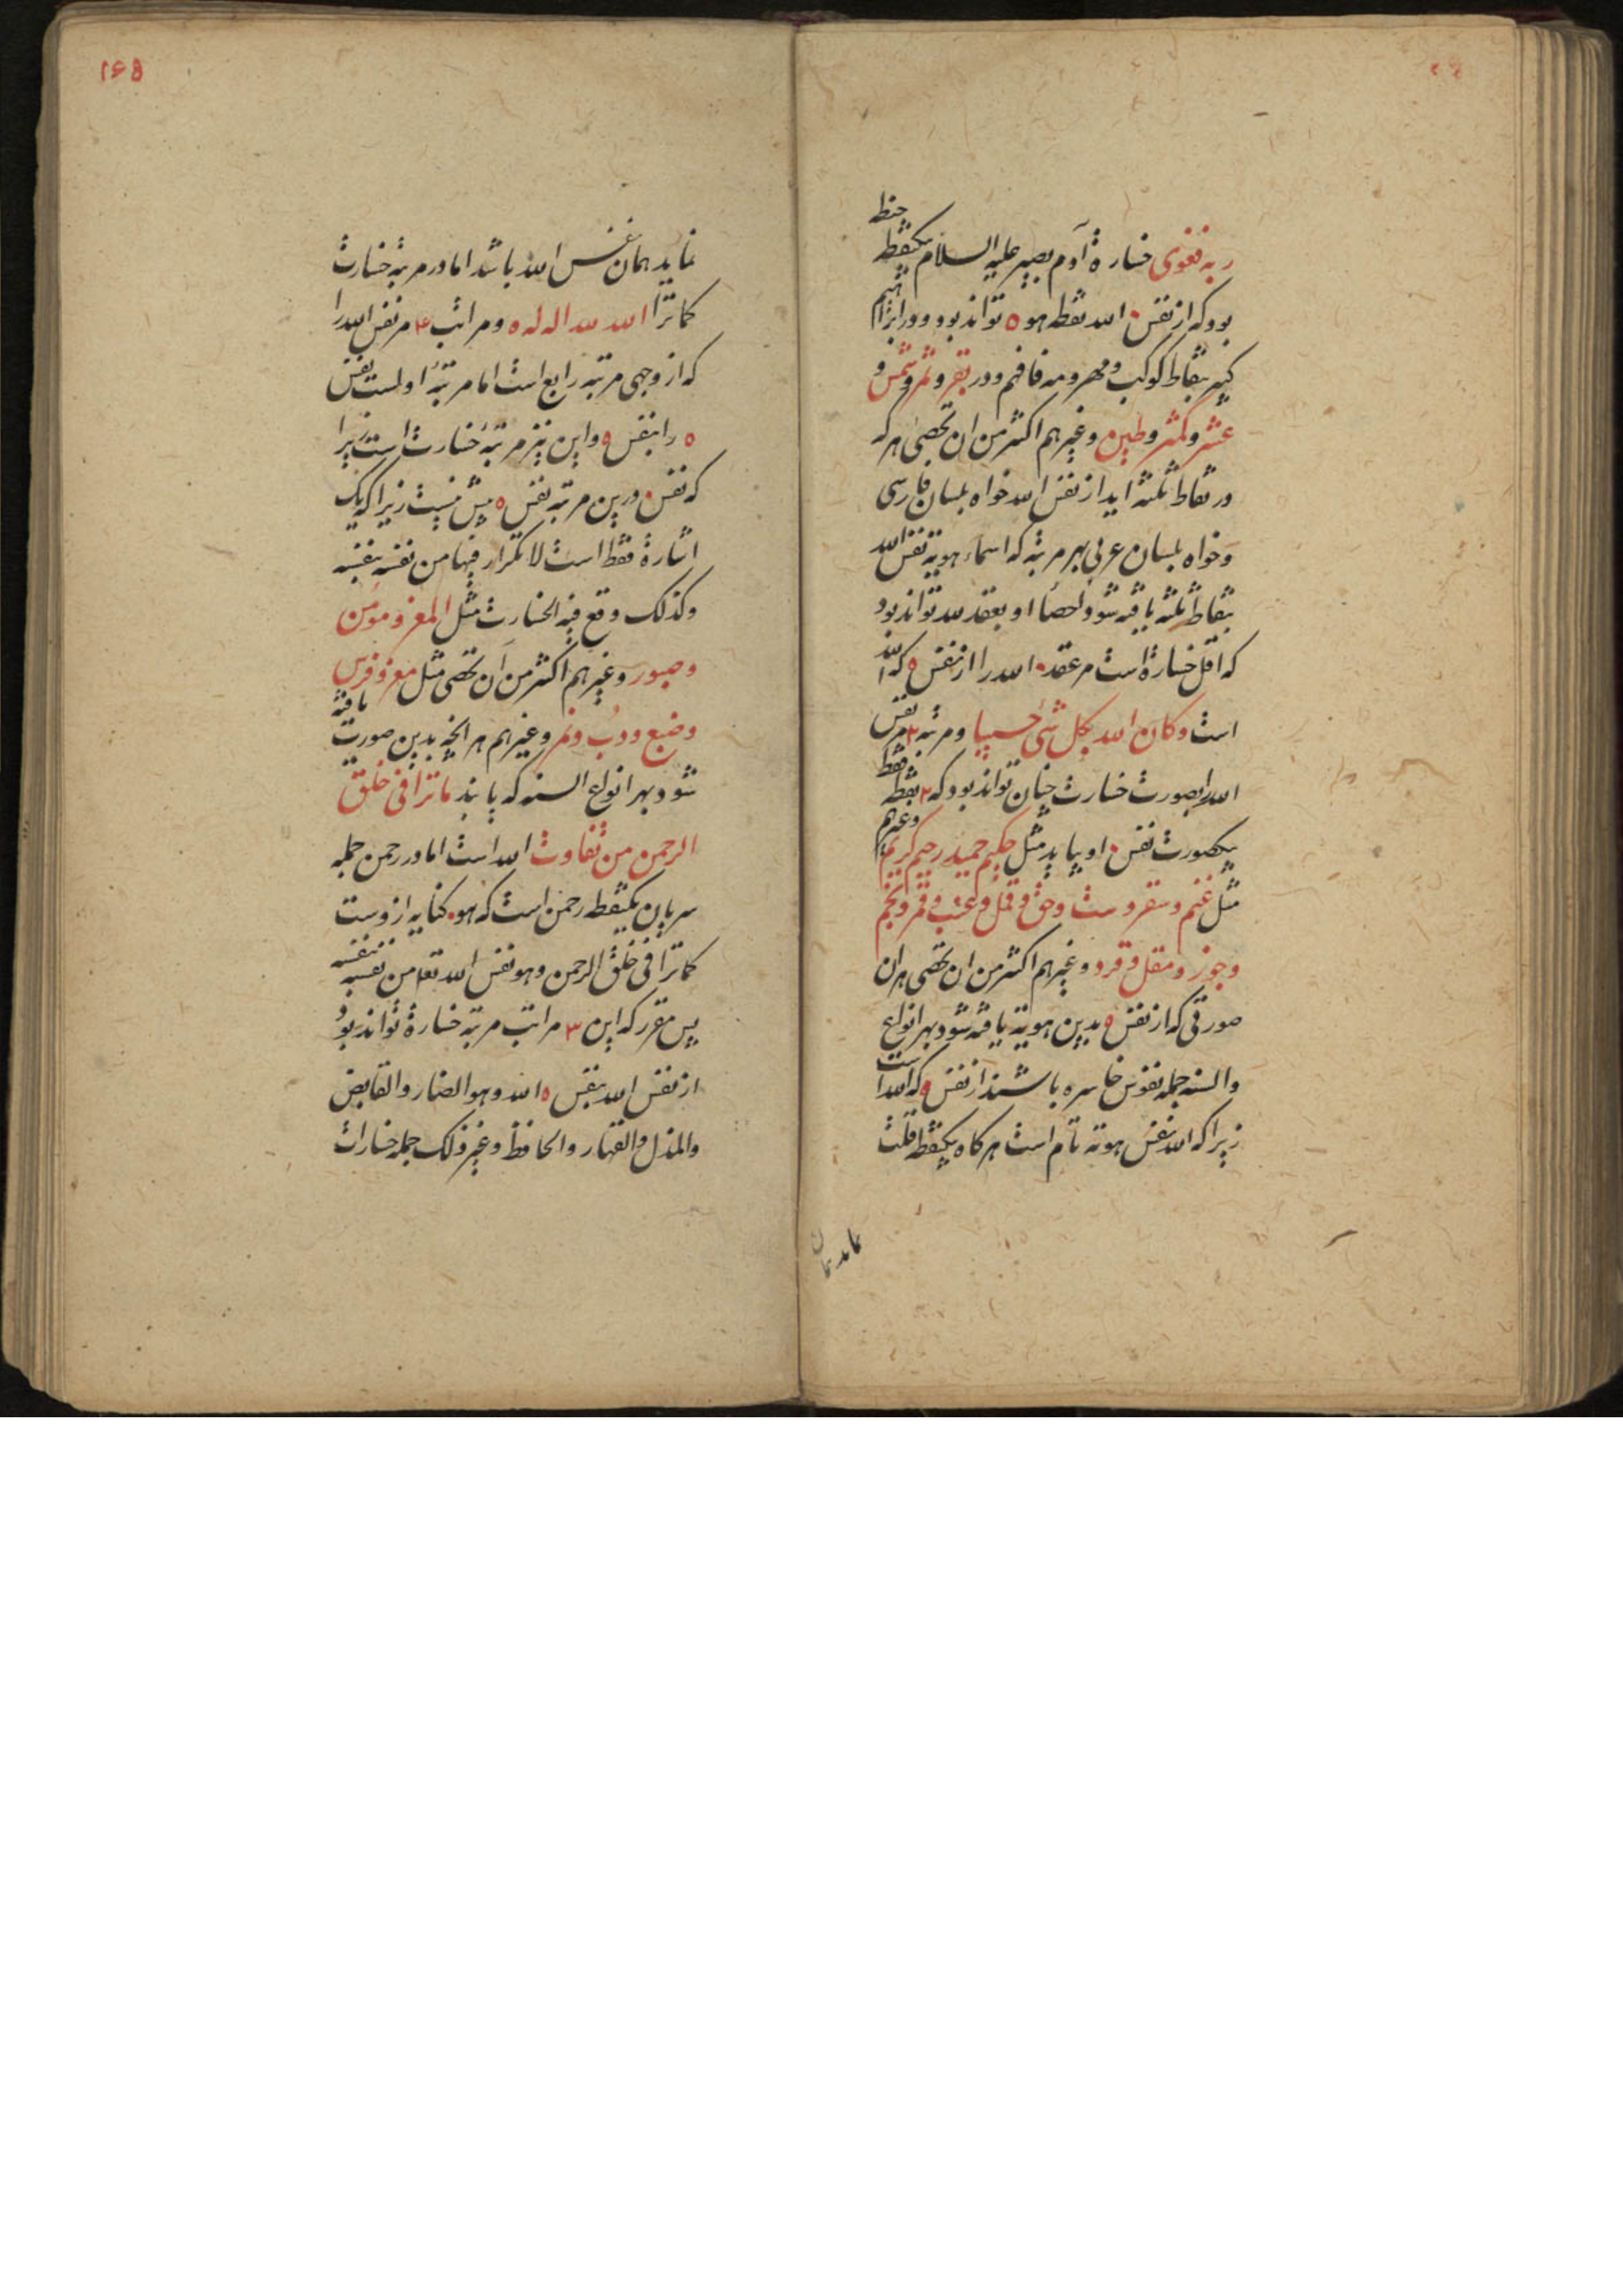 ربه فغوی خسارة آدم بصیر علیه السلام بیکنقطه حنطه
بود که از نفس ۰ الله نقطه هو ٥ تواند بود و در ابراهیم
کبیر بنقاط کوکب و مهر و مه فافهم و در بقر و ثمر و شمس و
عشر و کمثر و طین وغیرهم اکثر من ان تحصی هر که
در نقاط ثلثه اید از نفس الله خواه بلسان فارسی
وخواه بلسان عربی بهر مرتبه که اسماء هویة نفس الله
بنقاط ثلثه یافته شود واحصا او بعقد لله تواند بود
که اقل خسارة است مر عقد ۰ الله را از نفس ٥ که الله
است وکان الله بکل شئ حسیبا ومرتبه ۲ مر نفس
الله را بصورت خسارت چنان تواند بود که ۲ نقطه فقط
بیکصورت نفس ۰ او بیاید مثل حکیم حمید رحیم کریم وغیرهم
مثل غنم و سقر و ست وحق و قمل و عنب و قمر و نجم
وجوز ومقل و قرد وغیرهم اکثر من ان تحصی هر ان
صورتی که از نفس ٥ بدین هویة یافته شود بهر انواع
والسنه جمله نفوس خاسره باشند از نفس ٥ که الله است
زیرا که الله بنفس هوته تام است هر کاه بیکنقطه قلت
نماید همان
۱۶۵
نماید همان نفس الله باشد اما در مرتبه خسارت
کما ترا الله لله اله له ٥ ومراتب ۴ مر نفس الله را
که از وجهی مرتبه رابع است اما مرتبهٔ اولست نفس
٥ را بنفس ٥ واین نیز مرتبهٔ خسارت است زیرا
که نفس ۰ درین مرتبه نفس ٥ بیش نیست زیرا که یک
اشارة فقط است لا تکرار فیها من نفسه بنفسه
وکذلک وقع فیه الخسارت مثل المعز ومؤمن
وصبور وغیرهم اکثر من ان تحصی مثل معز و فرس
وضبع ودب ونمر وغیرهم هر انچه بدین صورت یافته
شود بهر انواع السنه که یابند ماترا فی خلق
الرحمن من تفاوت الله است اما در رحمن جمله
سریان بیکنقطه رحمن است که هو ۰ کنایه ازوست
کما ترا فی خلق الرحمن وهو نفس الله تعا من نفسه بنفسه
پس مقرر که این ۳ مراتب مرتبه خسارة تواند بود
از نفس الله بنفس ٥ الله وهو الضار والقابض
والمذل والقهار والحافظ وغیر ذلک جمله خسارات